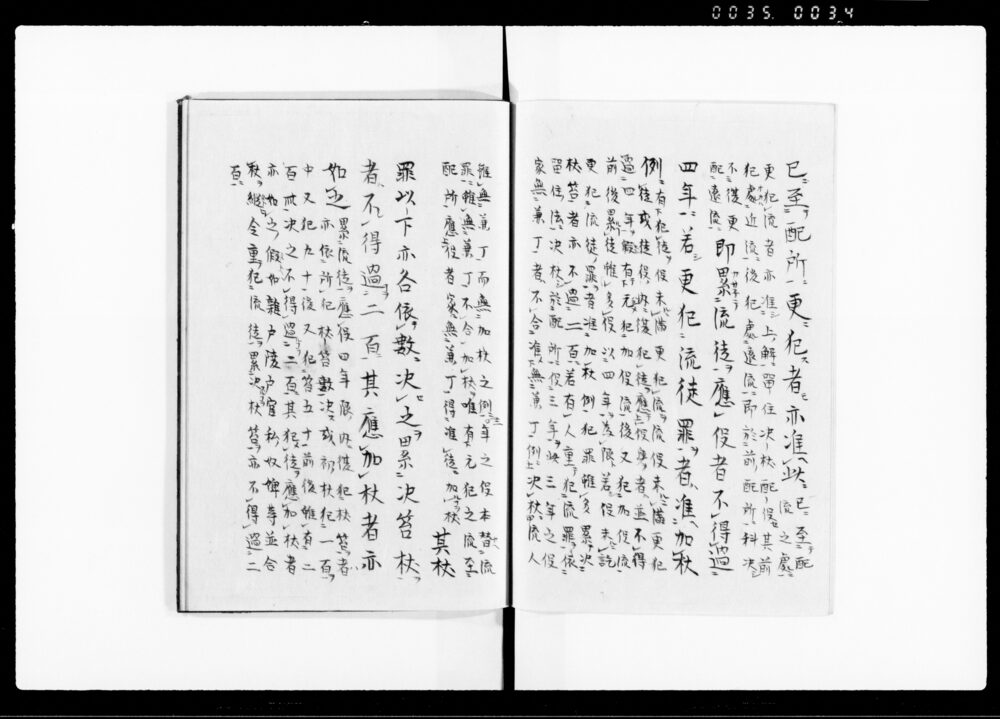 0035. 0034
已至配所更犯者亦准此 已至配流之處
更犯流者亦准上解單住決杖配役其前
犯處近流後犯處遠流即於前配所科決
不復更配遠流 即累流徒應役者不得過
四年 若更犯流徒罪者准加杖
例 有犯徒役未滿更犯流役未滿更犯
流徒或徒役內復犯徒應役身者並不得
過四年假有元犯加役流後又犯加役流
前後累徒雖多役以四年為限若役未訖
更犯流徒罪者准加杖例犯罪雖多累決
杖笞者亦不過二百若有人重犯流罪依
留住法決杖於配所役三年此三年之役
家無兼丁者不合准無兼丁例決杖流人
雖無兼丁而無加杖之例三年之役本替流
罪雖無兼丁不合加杖唯有元犯之流至
配所應役者家無兼丁得准徒加杖 其杖
罪以下亦各依數決之累決笞杖
者不得過二百其應加杖者亦
如之 累流徒應役四年限內復犯杖笞者
亦依所犯杖笞數決或初杖犯一百
中又犯九十後又犯笞五十前後雖有二
百卌決之不得過二百其犯徒應加杖者
亦如之假如雜戶陵戶官私奴婢等並合
杖縱令重犯流徒累決杖笞亦不得過二
百